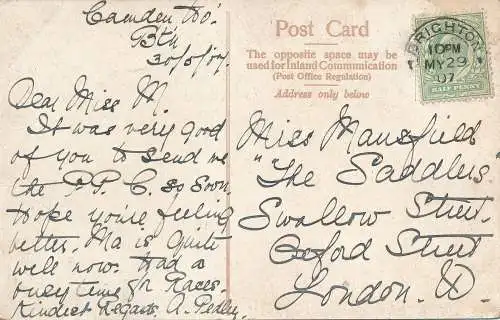 Camden Ho'
Btn
30/5/07
Dear Miss M.
It was very good
of you to send me
the P.P.C. so soon
Hope you're feeling
better. Ma is quite
well now. Had a
busy time for Races.
Kindest Regards. A. Pedley.
Post Card
The opposite space may be
used for Inland Communication
(Post Office Regulation)
Address only below
BRIGHTON
10 PM
MY 29
07
HALF PENNY
Miss Mansfield
"The Saddlers"
Swallow Street.
Oxford Street
London. W.